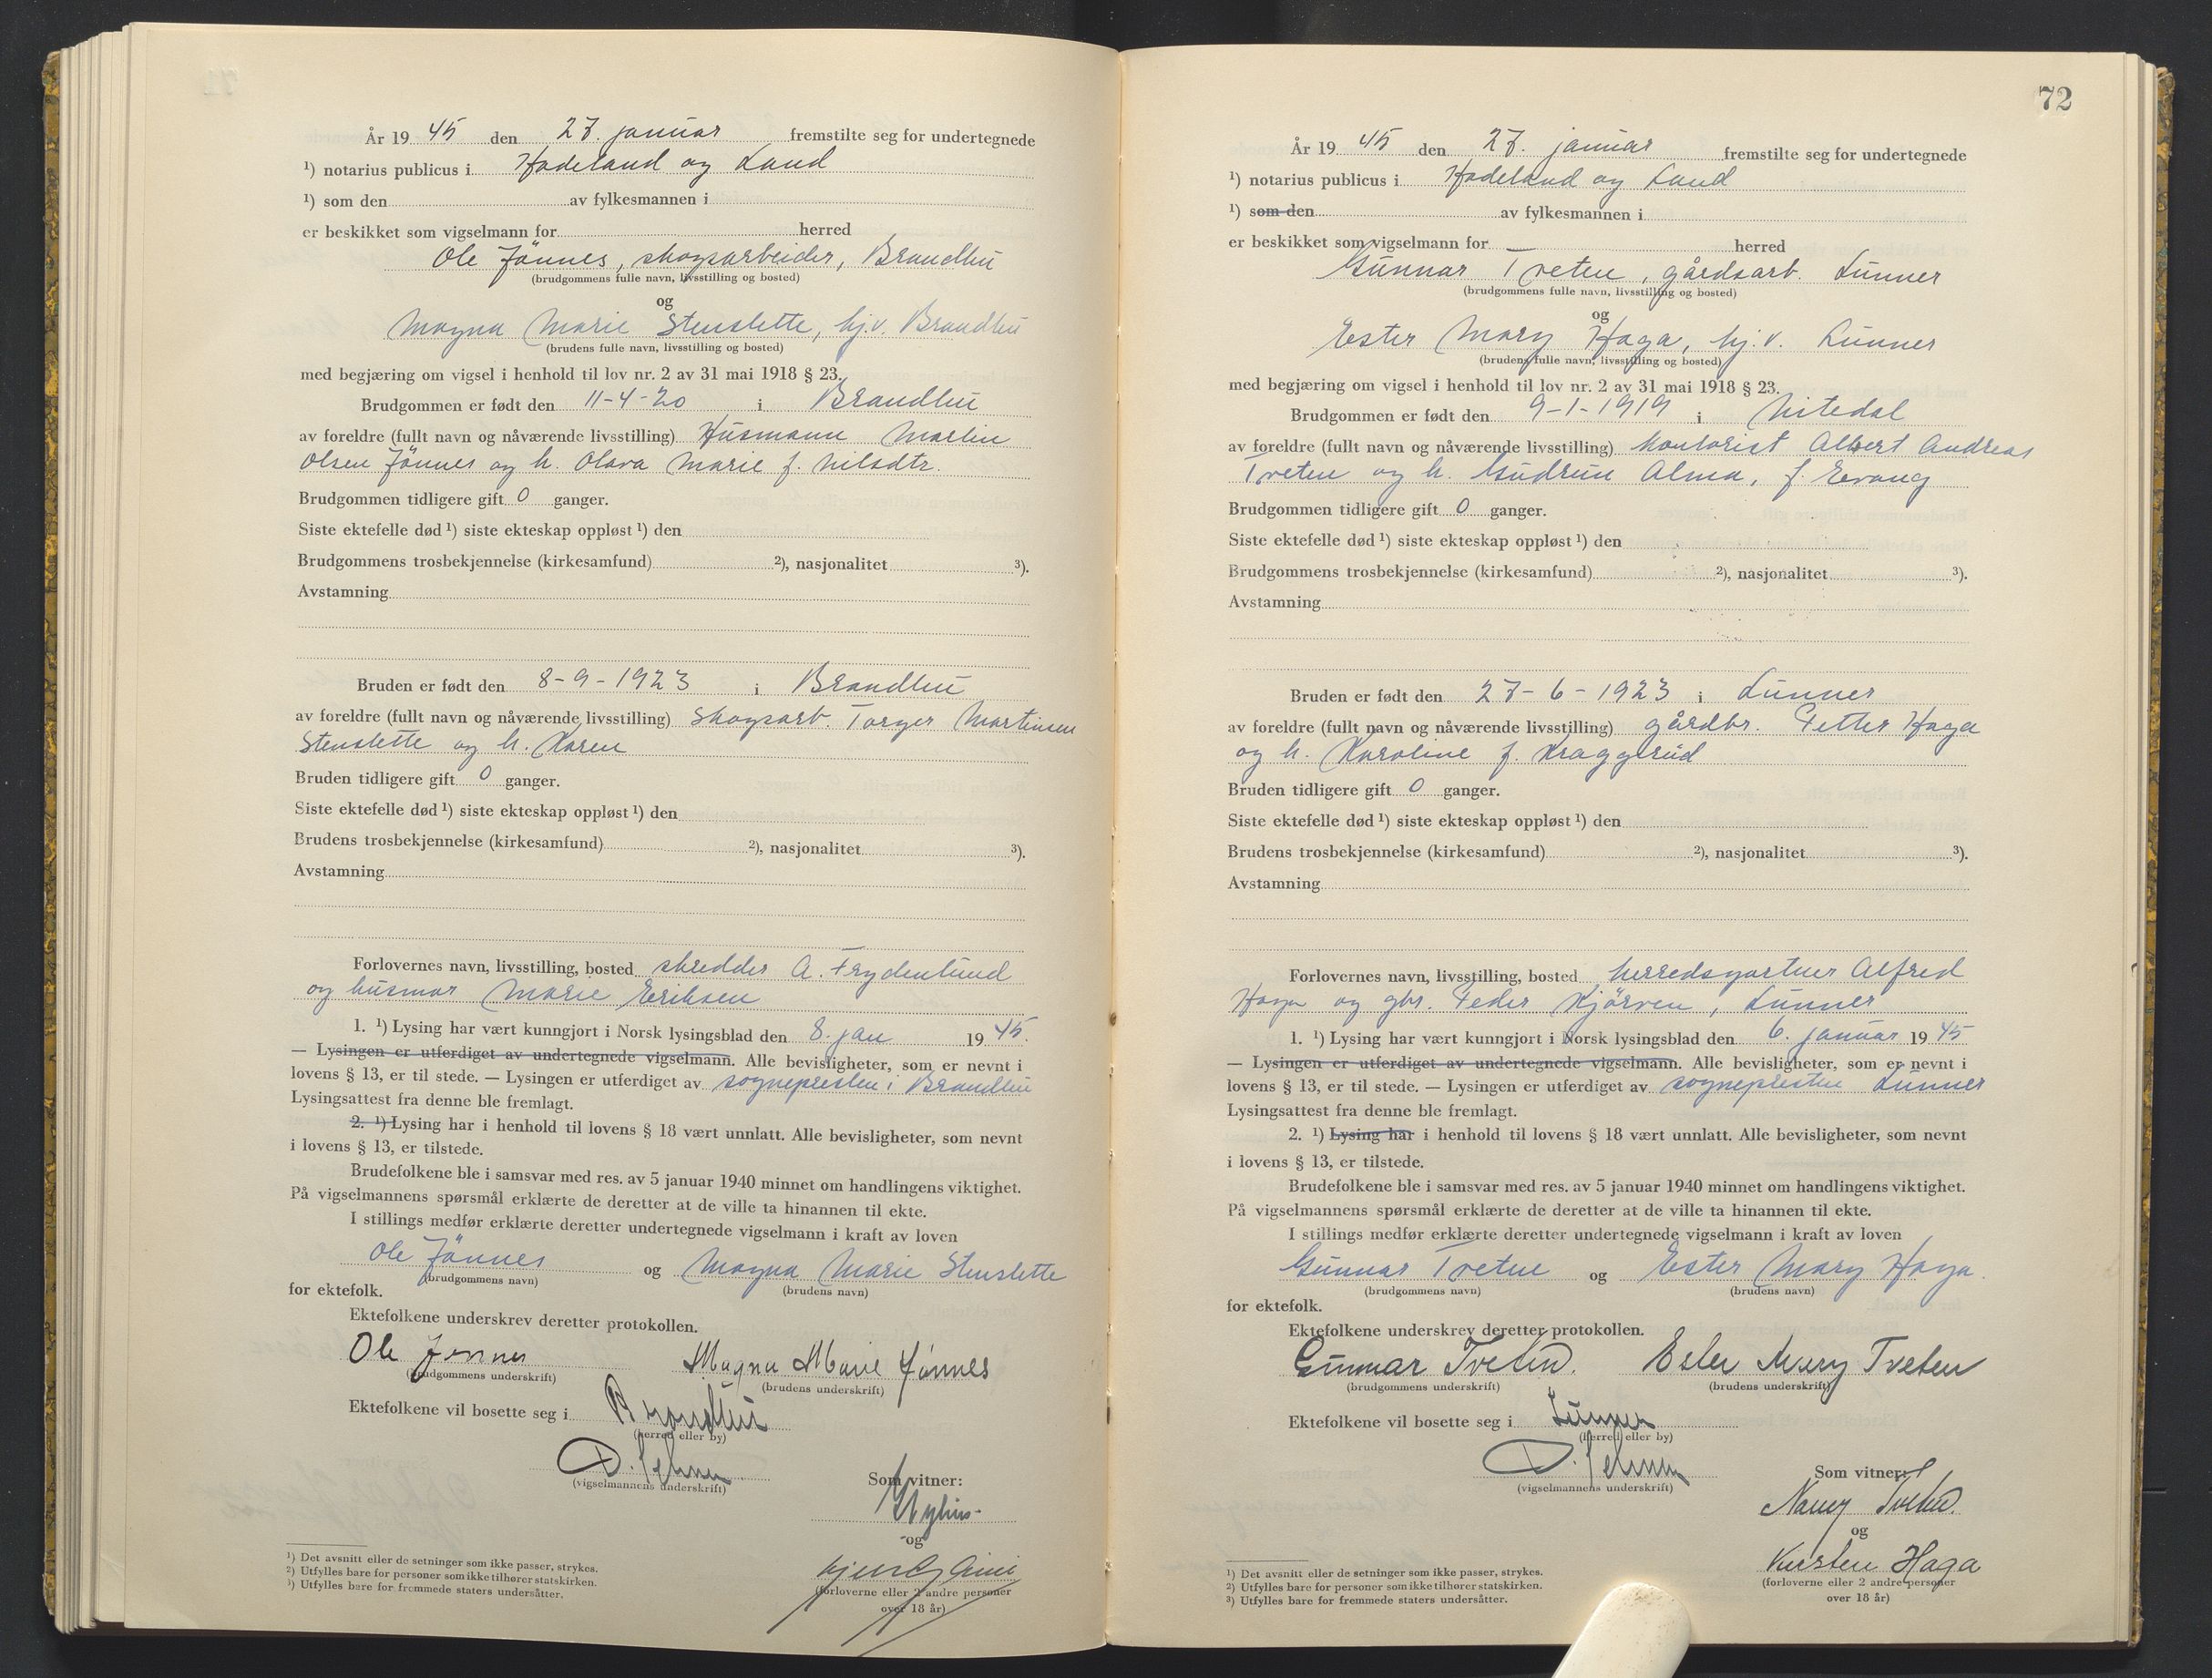 År 19 45 den 27. januar fremstilte seg for undertegnede
¹) notarius publicus i Hadeland og Land
¹) som den av fylkesmannen i
er beskikket som vigselmann for herred
Ole Jönnes, skogsarbeider, Brandbu
(brudgommens fulle navn, livsstilling og bosted)
og
Magna Marie Stenslette, hj.v. Brandbu
(brudens fulle navn, livsstilling og bosted)
med begjæring om vigsel i henhold til lov nr. 2 av 31 mai 1918 § 23.
Brudgommen er født den 11-4-20 i Brandbu
av foreldre (fullt navn og nåværende livsstilling) Husmann Martin
Olsen Jönnes og h. Olava Marie f. Nilsdtr.
Brudgommen tidligere gift 0 ganger.
Siste ektefelle død ¹) siste ekteskap oppløst ¹) den
Brudgommens trosbekjennelse (kirkesamfund) ²), nasjonalitet ³).
Avstamning
Bruden er født den 8-9-1923 i Brandbu
av foreldre (fullt navn og nåværende livsstilling) skogsarb. Torger Martinsen
Stenslette og h. Karen
Bruden tidligere gift 0 ganger.
Siste ektefelle død ¹) siste ekteskap oppløst ¹) den
Brudens trosbekjennelse (kirkesamfund) ²), nasjonalitet ³).
Avstamning
Forlovernes navn, livsstilling, bosted skredder A. Frydenlund
og husmor Marie Eriksen
1. ¹) Lysing har vært kunngjort i Norsk lysingsblad den 8. jan 19 45.
— Lysingen er utferdiget av undertegnede vigselmann. Alle bevisligheter, som er nevnt i
lovens § 13, er til stede. — Lysingen er utferdiget av sognepresten i Brandbu
Lysingsattest fra denne ble fremlagt.
2. ¹) Lysing har i henhold til lovens § 18 vært unnlatt. Alle bevisligheter, som nevnt
i lovens § 13, er tilstede.
Brudefolkene ble i samsvar med res. av 5 januar 1940 minnet om handlingens viktighet.
På vigselmannens spørsmål erklærte de deretter at de ville ta hinannen til ekte.
I stillings medfør erklærte deretter undertegnede vigselmann i kraft av loven
Ole Jönnes og Magna Marie Stenslette
(brudgommens navn) (brudens navn)
for ektefolk.
Ektefolkene underskrev deretter protokollen.
Ole Jönnes Magna Marie Jönnes
(brudgommens underskrift) (brudens underskrift)
Ektefolkene vil bosette seg i Brandbu
(herred eller by)
D.
(vigselmannens underskrift)
Som vitner:
og
(forloverne eller 2 andre personer
over 18 år)
¹) Det avsnitt eller de setninger som ikke passer, strykes.
²) Utfylles bare for personer som ikke tilhører statskirken.
³) Utfylles bare for fremmede staters undersåtter.
72
År 19 45 den 27. januar fremstilte seg for undertegnede
¹) notarius publicus i Hadeland og Land
¹) som den av fylkesmannen i
er beskikket som vigselmann for herred
Gunnar Tveten, gårdsarb. Lunner
(brudgommens fulle navn, livsstilling og bosted)
og
Ester Mary Haga, hj.v. Lunner
(brudens fulle navn, livsstilling og bosted)
med begjæring om vigsel i henhold til lov nr. 2 av 31 mai 1918 § 23.
Brudgommen er født den 9-1-1919 i Nitedal
av foreldre (fullt navn og nåværende livsstilling) kontorist Albert Andreas
Tveten og h. Gudrun Alma, f. Evang
Brudgommen tidligere gift 0 ganger.
Siste ektefelle død ¹) siste ekteskap oppløst ¹) den
Brudgommens trosbekjennelse (kirkesamfund) ²), nasjonalitet ³).
Avstamning
Bruden er født den 27-6-1923 i Lunner
av foreldre (fullt navn og nåværende livsstilling) gårdbr. Petter Haga
og h. Karoline f. Kraggerud
Bruden tidligere gift 0 ganger.
Siste ektefelle død ¹) siste ekteskap oppløst ¹) den
Brudens trosbekjennelse (kirkesamfund) ²), nasjonalitet ³).
Avstamning
Forlovernes navn, livsstilling, bosted herredsgartner Alfred
Haga og gbr. Peder Kjörven, Lunner
1. ¹) Lysing har vært kunngjort i Norsk lysingsblad den 6. januar 19 45
— Lysingen er utferdiget av undertegnede vigselmann. Alle bevisligheter, som er nevnt i
lovens § 13, er til stede. — Lysingen er utferdiget av sognepresten Lunner
Lysingsattest fra denne ble fremlagt.
2. ¹) Lysing har i henhold til lovens § 18 vært unnlatt. Alle bevisligheter, som nevnt
i lovens § 13, er tilstede.
Brudefolkene ble i samsvar med res. av 5 januar 1940 minnet om handlingens viktighet.
På vigselmannens spørsmål erklærte de deretter at de ville ta hinannen til ekte.
I stillings medfør erklærte deretter undertegnede vigselmann i kraft av loven
Gunnar Tveten og Ester Mary Haga.
(brudgommens navn) (brudens navn)
for ektefolk.
Ektefolkene underskrev deretter protokollen.
Gunnar Tveten. Ester Mary Tveten
(brudgommens underskrift) (brudens underskrift)
Ektefolkene vil bosette seg i Lunner
(herred eller by)
D.
(vigselmannens underskrift)
Som vitner:
Nancy Tveten.
og
Kirsten Haga
(forloverne eller 2 andre personer
over 18 år)
¹) Det avsnitt eller de setninger som ikke passer, strykes.
²) Utfylles bare for personer som ikke tilhører statskirken.
³) Utfylles bare for fremmede staters undersåtter.